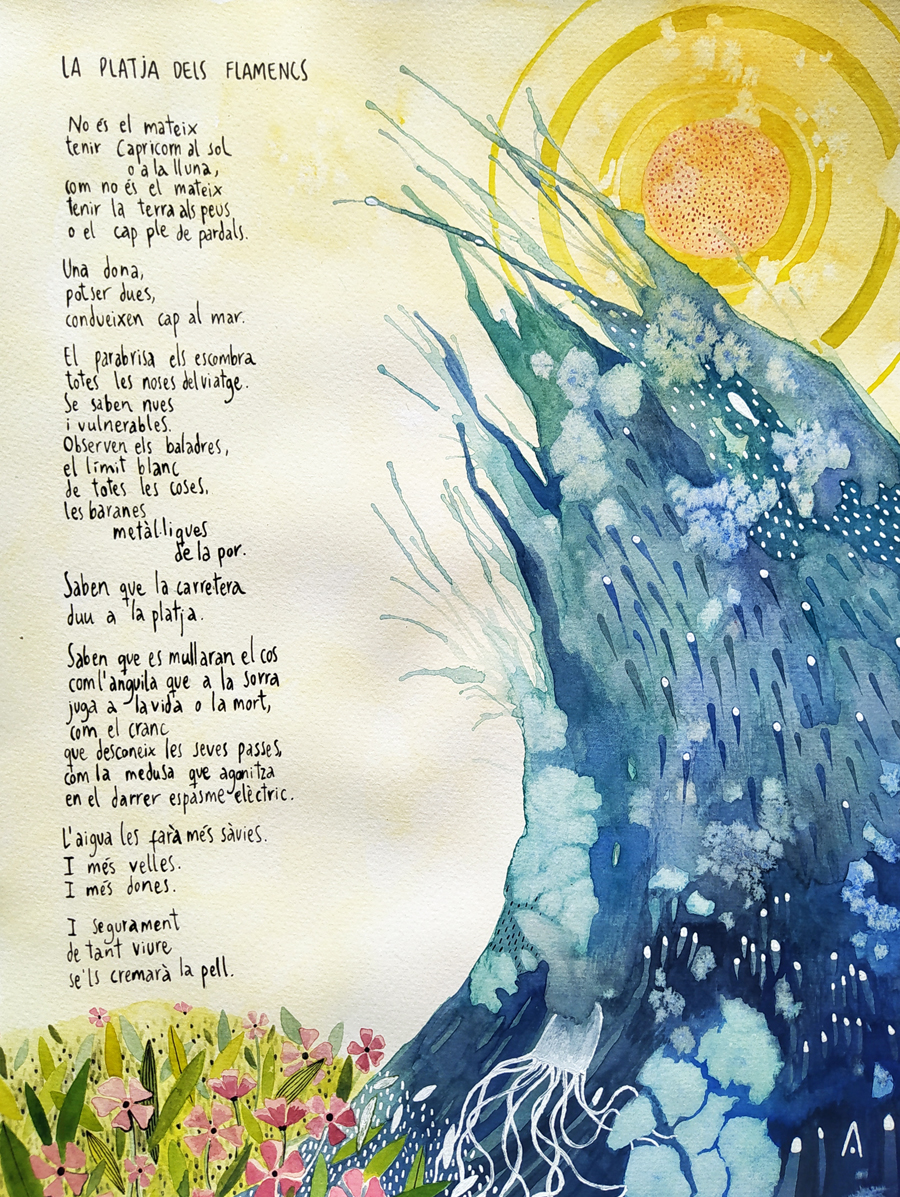 LA PLATJA DELS FLAMENCS
No és el mateix
tenir Capricorn al sol
o a la lluna,
com no és el mateix
tenir la terra als peus
o el cap ple de pardals.
Una dona,
potser dues,
condueixen cap al mar.
El parabrisa els escombra
totes les noses del viatge.
Se saben nues
i vulnerables.
Observen els baladres,
el límit blanc
de totes les coses,
les baranes
metàl·liques
de la por.
Saben que la carretera
duu a la platja.
Saben que es mullaran el cos
com l'anguila que a la sorra
juga a la vida o la mort,
com el cranc
que desconeix les seves passes,
com la medusa que agonitza
en el darrer espasme elèctric.
L'aigua les farà més sàvies.
I més velles.
I més dones.
I segurament
de tant viure
se'ls cremarà la pell.